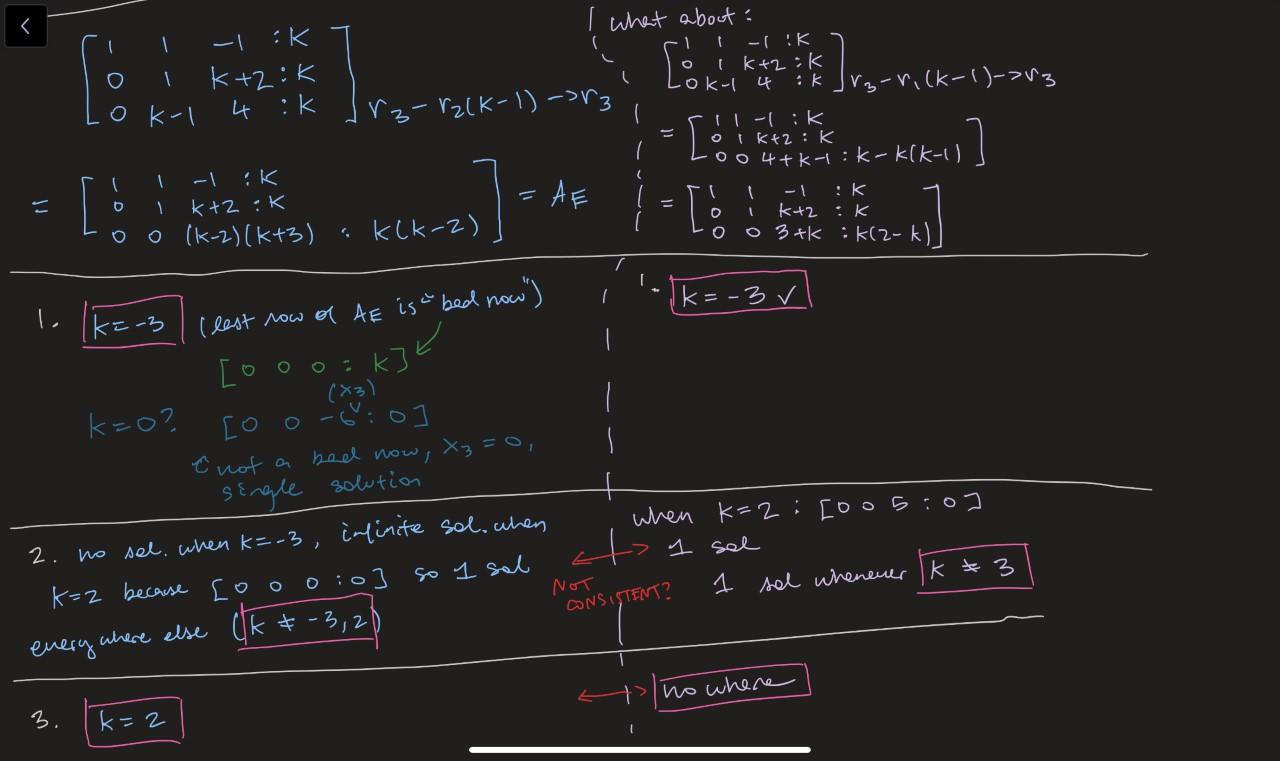 [ 1 1 -1 : K
0 1 K+2 : K
0 K-1 4 : K ] r3 - r2(K-1) -> r3
= [ 1 1 -1 : K
0 1 K+2 : K
0 0 (K-2)(K+3) : K(K-2) ] = AE
what about :
[ 1 1 -1 : K
0 1 K+2 : K
0 K-1 4 : K ] r3 - r1(K-1) -> r3
= [ 1 1 -1 : K
0 1 K+2 : K
0 0 4+K-1 : K-K(K-1) ]
= [ 1 1 -1 : K
0 1 K+2 : K
0 0 3+K : K(2-K) ]
1. K = -3 (last row of AE is "bad row")
[ 0 0 0 : K ]
(x3)
K=0? [ 0 0 -6 : 0 ]
not a bad row, x3 = 0,
single solution
1. K = -3 ✓
2. no sol. when K=-3, infinite sol. when
K=2 because [ 0 0 0 : 0 ] so 1 sol
everywhere else (K ≠ -3, 2)
NOT
CONSISTENT?
when K=2 : [ 0 0 5 : 0 ]
1 sol
1 sol whenever K ≠ 3
3. K = 2
no where